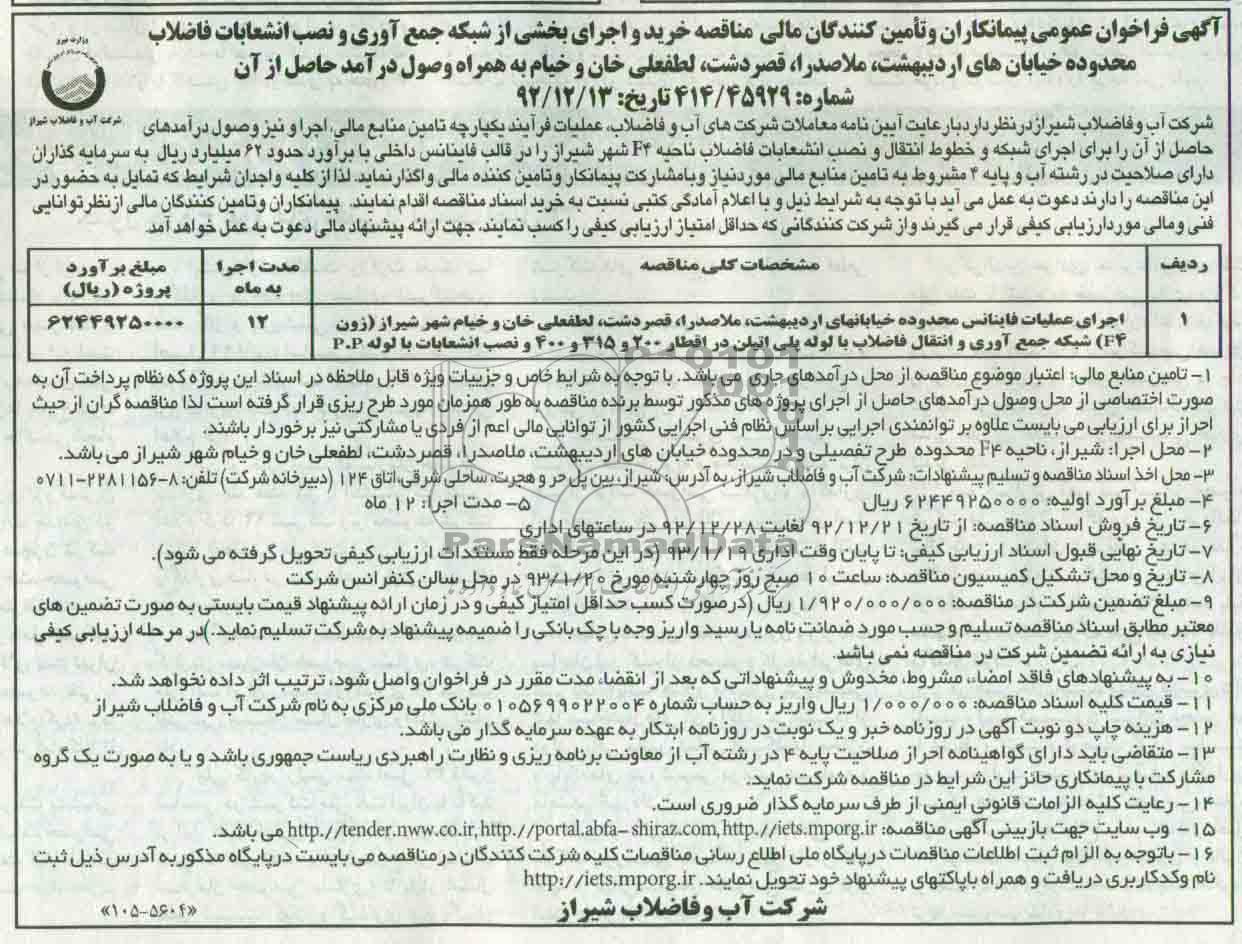 آگهی فراخوان عمومی پیمانکاران وتأمین کنندگان مالی مناقصه خرید و اجرای بخشی از شبکه جمع آوری و نصب انشعابات فاضلاب
محدوده خیابان های اردیبهشت، ملاصدرا، قصردشت، لطفعلی خان و خیام به همراه وصول درآمد حاصل از آن
شماره: ۴۱۴/۴۵۹۲۹ تاریخ: ۹۲/۱۲/۱۳
وزارت نیرو
شرکت آب و فاضلاب شیراز
شرکت آب وفاضلاب شیرازدرنظرداردبارعایت آیین نامه معاملات شرکت های آب و فاضلاب، عملیات فرآیند یکپارچه تامین منابع مالی، اجرا و نیز وصول درآمدهای
حاصل از آن را برای اجرای شبکه و خطوط انتقال و نصب انشعابات فاضلاب ناحیه F۴ شهر شیراز را در قالب فاینانس داخلی با برآورد حدود ۶۲ میلیارد ریال به سرمایه گذاران
دارای صلاحیت در رشته آب و پایه ۴ مشروط به تامین منابع مالی موردنیاز وبامشارکت پیمانکار وتامین کننده مالی واگذارنماید. لذا از کلیه واجدان شرایط که تمایل به حضور در
این مناقصه را دارند دعوت به عمل می آید با توجه به شرایط ذیل و با اعلام آمادگی کتبی نسبت به خرید اسناد مناقصه اقدام نمایند. پیمانکاران وتامین کنندگان مالی ازنظرتوانایی
فنی ومالی موردارزیابی کیفی قرار می گیرند واز شرکت کنندگانی که حداقل امتیاز ارزیابی کیفی را کسب نمایند، جهت ارائه پیشنهاد مالی دعوت به عمل خواهد آمد.
ردیف	مشخصات کلی مناقصه	مدت اجرا به ماه	مبلغ برآورد پروژه (ریال)
۱	اجرای عملیات فاینانس محدوده خیابانهای اردیبهشت، ملاصدرا، قصردشت، لطفعلی خان و خیام شهر شیراز (زون	۱۲	۶۲۴۴۹۲۵۰۰۰۰
F۴) شبکه جمع آوری و انتقال فاضلاب با لوله پلی اتیلن در اقطار ۲۰۰ و ۳۱۵ و ۴۰۰ و نصب انشعابات با لوله P.P
۱- تامین منابع مالی: اعتبار موضوع مناقصه از محل درآمدهای جاری می باشد. با توجه به شرایط خاص و جزییات ویژه قابل ملاحظه در اسناد این پروژه که نظام پرداخت آن به
صورت اختصاصی از محل وصول درآمدهای حاصل از اجرای پروژه های مذکور توسط برنده مناقصه به طور همزمان مورد طرح ریزی قرار گرفته است لذا مناقصه گران از حیث
احراز برای ارزیابی می بایست علاوه بر توانمندی اجرایی براساس نظام فنی اجرایی کشور از توانایی مالی اعم از فردی یا مشارکتی نیز برخوردار باشند.
۲- محل اجرا: شیراز، ناحیه F۴ محدوده طرح تفصیلی و در محدوده خیابان های اردیبهشت، ملاصدرا، قصردشت، لطفعلی خان و خیام شهر شیراز می باشد.
۳- محل اخذ اسناد مناقصه و تسلیم پیشنهادات: شرکت آب و فاضلاب شیراز، به آدرس: شیراز، بین پل حر و هجرت، ساحلی شرقی، اتاق ۱۲۴ (دبیرخانه شرکت) تلفن: ۸-۲۲۸۱۱۵۶-۰۷۱۱
۴- مبلغ برآورد اولیه: ۶۲۴۴۹۲۵۰۰۰۰ ریال ۵- مدت اجرا: ۱۲ ماه
۶- تاریخ فروش اسناد مناقصه: از تاریخ ۹۲/۱۲/۲۱ لغایت ۹۲/۱۲/۲۸ در ساعتهای اداری
۷- تاریخ نهایی قبول اسناد ارزیابی کیفی: تا پایان وقت اداری ۹۳/۱/۱۹ (در این مرحله فقط مستندات ارزیابی کیفی تحویل گرفته می شود).
۸- تاریخ و محل تشکیل کمیسیون مناقصه: ساعت ۱۰ صبح روز چهارشنبه مورخ ۹۳/۱/۲۰ در محل سالن کنفرانس شرکت
۹- مبلغ تضمین شرکت در مناقصه: ۱/۹۲۰/۰۰۰/۰۰۰ ریال (درصورت کسب حداقل امتیاز کیفی و در زمان ارائه پیشنهاد قیمت بایستی به صورت تضمین های
معتبر مطابق اسناد مناقصه تسلیم و حسب مورد ضمانت نامه یا رسید واریز وجه یا چک بانکی را ضمیمه پیشنهاد به شرکت تسلیم نماید.)در مرحله ارزیابی کیفی
نیازی به ارائه تضمین شرکت در مناقصه نمی باشد.
۱۰- به پیشنهادهای فاقد امضاء، مشروط، مخدوش و پیشنهاداتی که بعد از انقضاء مدت مقرر در فراخوان واصل شود، ترتیب اثر داده نخواهد شد.
۱۱- قیمت کلیه اسناد مناقصه: ۱/۰۰۰/۰۰۰ ریال واریز به حساب شماره ۰۱۰۵۶۹۹۰۲۲۰۰۴ بانک ملی مرکزی به نام شرکت آب و فاضلاب شیراز
۱۲- هزینه چاپ دو نوبت آگهی در روزنامه خبر و یک نوبت در روزنامه ابتکار به عهده سرمایه گذار می باشد.
۱۳- متقاضی باید دارای گواهینامه احراز صلاحیت پایه ۴ در رشته آب از معاونت برنامه ریزی و نظارت راهبردی ریاست جمهوری باشد و یا به صورت یک گروه
مشارکت با پیمانکاری حائز این شرایط در مناقصه شرکت نماید.
۱۴- رعایت کلیه الزامات قانونی ایمنی از طرف سرمایه گذار ضروری است.
۱۵- وب سایت جهت بازبینی آگهی مناقصه: http://tender.nww.co.ir,http://portal.abfa-shiraz.com,http://iets.mporg.ir می باشد.
۱۶- باتوجه به الزام ثبت اطلاعات مناقصات درپایگاه ملی اطلاع رسانی مناقصات کلیه شرکت کنندگان درمناقصه می بایست درپایگاه مذکوربه آدرس ذیل ثبت
نام وکدکاربری دریافت و همراه باپاکتهای پیشنهاد خود تحویل نمایند. http://iets.mporg.ir
شرکت آب وفاضلاب شیراز
«۱۰۵-۵۶۰۴»
ParsNamadData